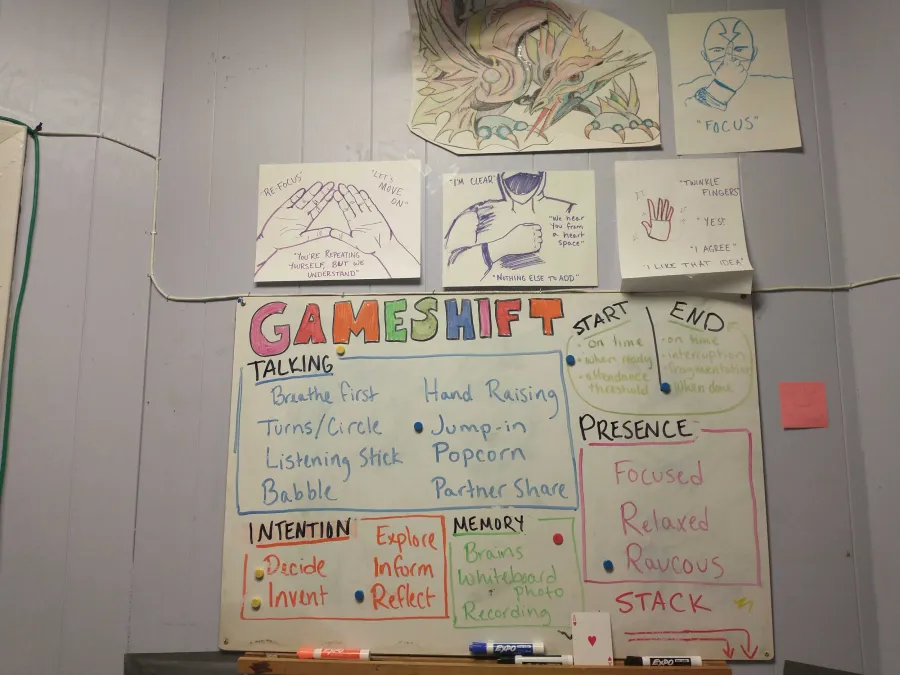 "FOCUS"
"RE-FOCUS"
"LET'S
MOVE
ON"
"YOU'RE REPEATING
YOURSELF, BUT WE
UNDERSTAND"
"I'M CLEAR"
"We hear
you from
a heart
space"
"NOTHING ELSE TO ADD"
"TWINKLE
FINGERS"
"YES!
"I AGREE"
"I LIKE THAT IDEA"
GAMESHIFT
TALKING
Breathe first
Turns/Circle
Listening Stick
Babble
Hand Raising
Jump-in
Popcorn
Partner Share
START
on time
when ready
attendance
threshold
END
on time
interruption
fragmentation
When done
PRESENCE
Focused
Relaxed
Raucous
INTENTION
Decide
Invent
Explore
Inform
Reflect
MEMORY
Brains
Whiteboard
photo
Recording
STACK
EXPO
EXPO
EXPO
EXPO
A